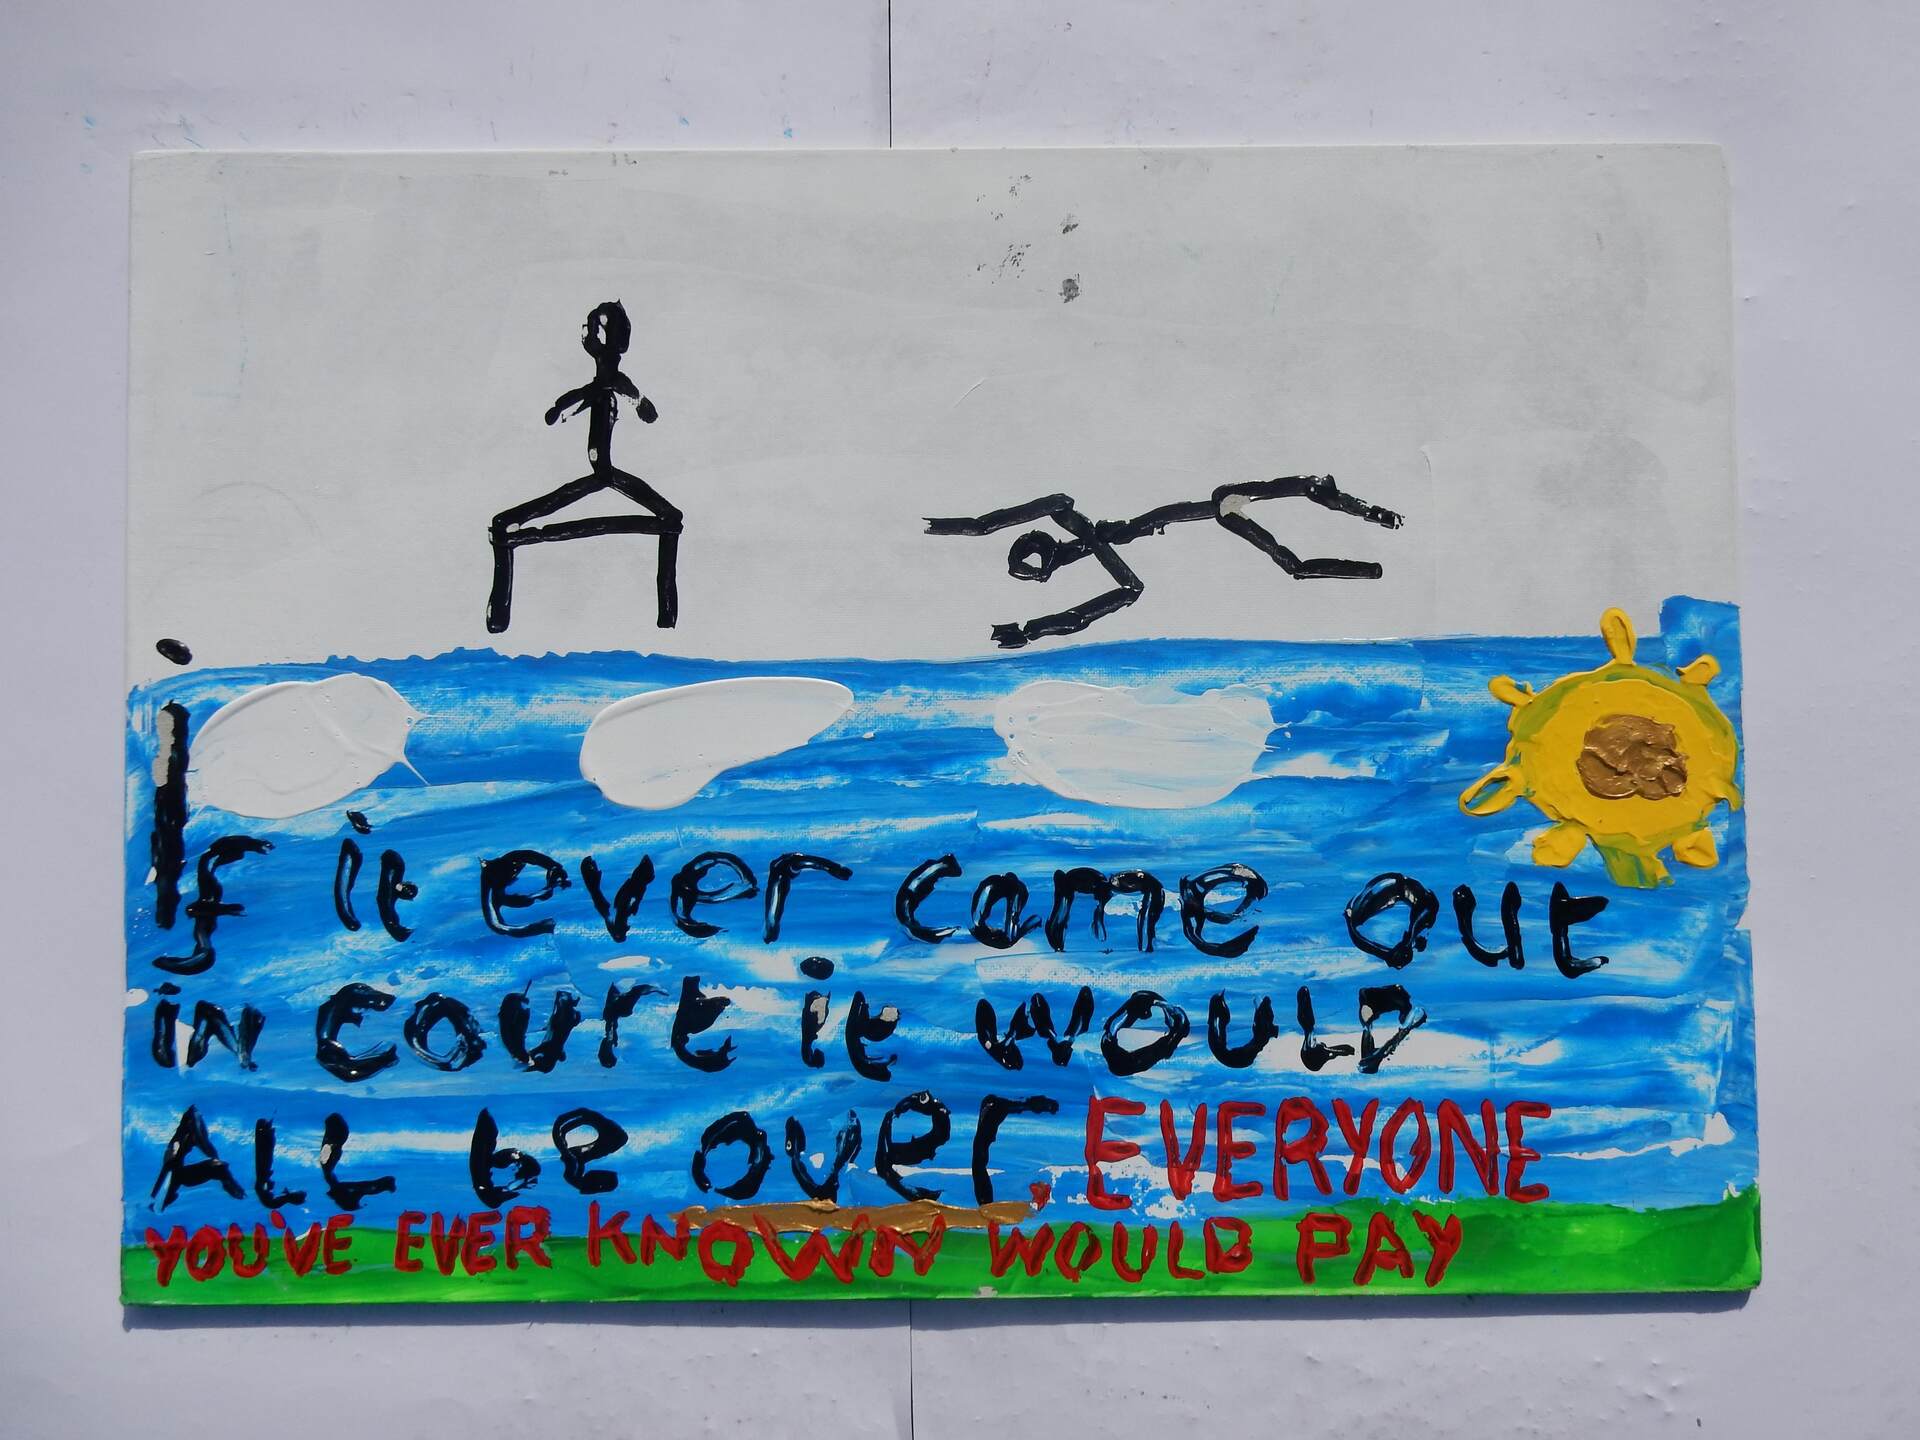 if it ever came out
in court it would
ALL be over, EVERYONE
YOU'VE EVER KNOWN WOULD PAY